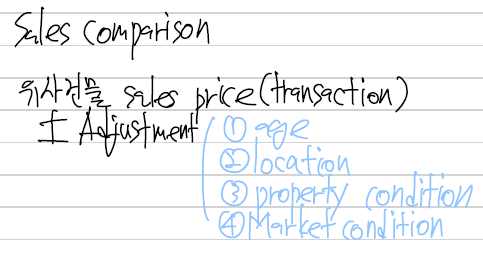 Sales comparison
위사건물 sales price (transaction)
± Adjustment ① age
② location
③ property condition
④ Market condition